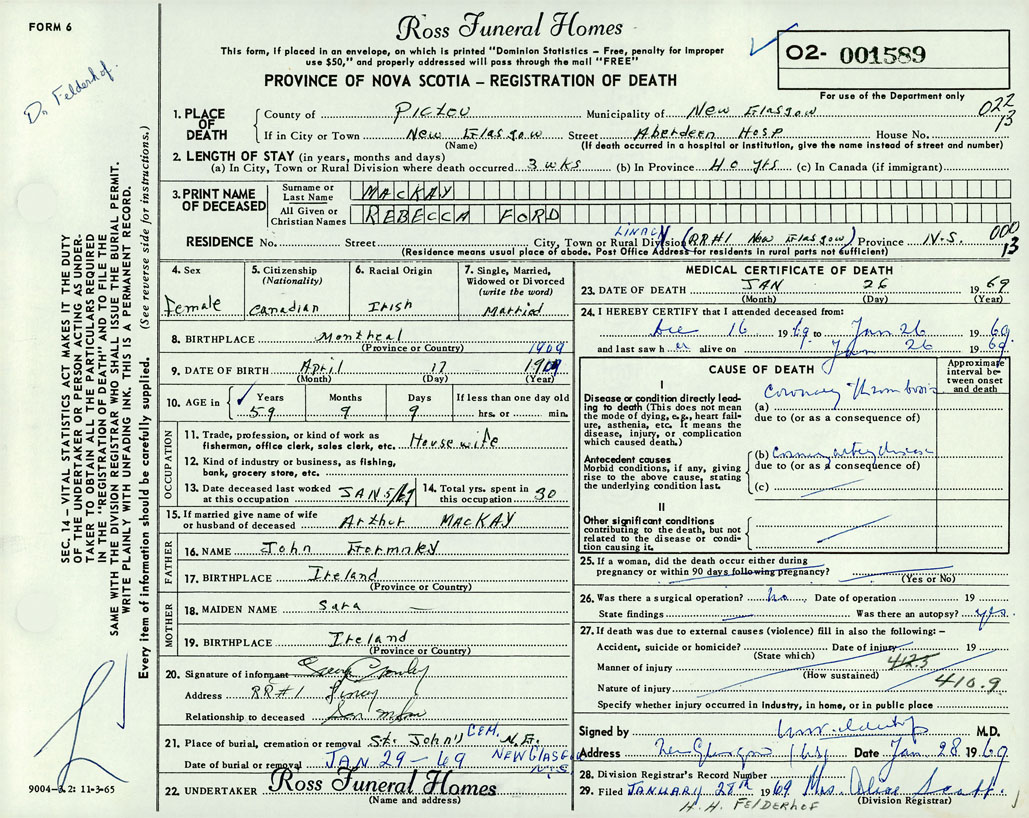 FORM 6
Ross Funeral Homes
This form, if placed in an envelope, on which is printed "Dominion Statistics – Free, penalty for improper
use $50," and properly addressed will pass through the mail "FREE"
PROVINCE OF NOVA SCOTIA – REGISTRATION OF DEATH
02- 001589
For use of the Department only
Dr. Felderhof.
SEC. 14 – VITAL STATISTICS ACT MAKES IT THE DUTY
OF THE UNDERTAKER OR PERSON ACTING AS UNDER-
TAKER TO OBTAIN ALL THE PARTICULARS REQUIRED
IN THE "REGISTRATION OF DEATH" AND TO FILE THE
SAME WITH THE DIVISION REGISTRAR WHO SHALL ISSUE THE BURIAL PERMIT.
WRITE PLAINLY WITH UNFADING INK. THIS IS A PERMANENT RECORD.
Every item of information should be carefully supplied. (See reverse side for instructions.)
1. PLACE OF DEATH
County of Pictou Municipality of New Glasgow 022
13
If in City or Town New Glasgow Street Aberdeen Hosp House No.
(Name) (If death occurred in a hospital or institution, give the name instead of street and number)
2. LENGTH OF STAY (in years, months and days)
(a) In City, Town or Rural Division where death occurred 3 wks (b) In Province 40 yrs (c) In Canada (if immigrant)
3. PRINT NAME OF DECEASED
Surname or Last Name MACKAY
All Given or Christian Names REBECCA FORD
LINACY
RESIDENCE No. Street City, Town or Rural Division (RR#1 New Glasgow) Province N.S. 000
13
(Residence means usual place of abode. Post Office Address for residents in rural parts not sufficient)
4. Sex Female
5. Citizenship (Nationality) Canadian
6. Racial Origin Irish
7. Single, Married, Widowed or Divorced (write the word) Married
8. BIRTHPLACE Montreal
(Province or Country)
1909
9. DATE OF BIRTH April 17 19
(Month) (Day) (Year)
10. AGE in Years Months Days If less than one day old
59 9 9 hrs. or min.
OCCUPATION
11. Trade, profession, or kind of work as
fisherman, office clerk, sales clerk, etc. Housewife
12. Kind of industry or business, as fishing,
bank, grocery store, etc.
13. Date deceased last worked at this occupation JAN 5/69 14. Total yrs. spent in this occupation 30
15. If married give name of wife
or husband of deceased Arthur MACKAY
FATHER
16. NAME John
17. BIRTHPLACE Ireland
(Province or Country)
MOTHER
18. MAIDEN NAME Sara
19. BIRTHPLACE Ireland
(Province or Country)
20. Signature of informant
Address RR#1
Relationship to deceased Son
21. Place of burial, cremation or removal St. John's CEM.
Date of burial or removal JAN 29 – 69 NEW GLASGOW N.S.
22. UNDERTAKER Ross Funeral Homes
(Name and address)
9004-3.2: 11-3-65
MEDICAL CERTIFICATE OF DEATH
23. DATE OF DEATH JAN 26 1969
(Month) (Day) (Year)
24. I HEREBY CERTIFY that I attended deceased from:
Dec 16 1969 to Jan 26 1969
and last saw h er alive on Jan 26 1969
CAUSE OF DEATH
Approximate interval be-tween onset and death
I
Disease or condition directly lead-
ing to death (This does not mean
the mode of dying, e.g., heart fail-
ure, asthenia, etc. It means the
disease, injury, or complication
which caused death.)
(a) Coronary Thrombosis
due to (or as a consequence of)
Antecedent causes
Morbid conditions, if any, giving
rise to the above cause, stating
the underlying condition last.
(b) Coronary artery disease
due to (or as a consequence of)
(c)
II
Other significant conditions
contributing to the death, but not
related to the disease or condi-
tion causing it.
25. If a woman, did the death occur either during
pregnancy or within 90 days following pregnancy?
(Yes or No)
26. Was there a surgical operation? no Date of operation 19
State findings Was there an autopsy? yes.
27. If death was due to external causes (violence) fill in also the following: –
Accident, suicide or homicide? Date of injury 19
(State which)
Manner of injury 425
(How sustained)
Nature of injury 410.9
Specify whether injury occurred in industry, in home, or in public place
Signed by M.D.
Address New Glasgow Date Jan 28 1969
28. Division Registrar's Record Number
29. Filed JANUARY 28th 1969 Mrs. Olive Scott.
(Division Registrar)
H. H. FELDERHOF